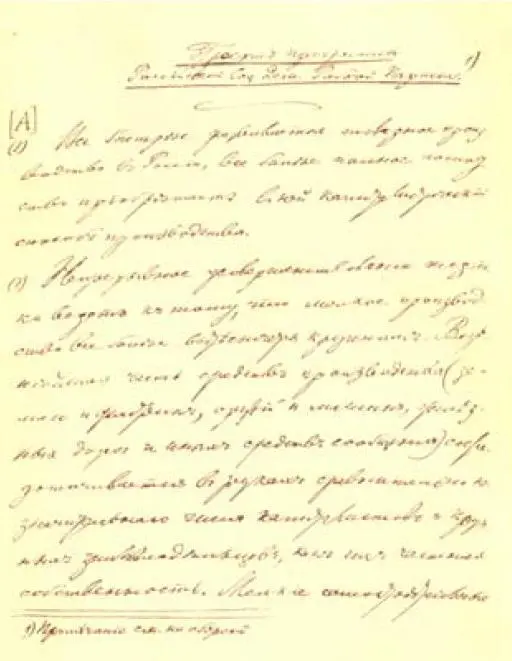 Проектъ программы
Россійской Соц.-Дем. Рабочей Партіи. 1)
[А]
(1) Все быстрѣе развивается товарное произ-
водство въ Россіи, все болѣе полное господ-
ство пріобрѣтаетъ въ ней капиталистическій
способъ производства.
(2) Непрерывное усовершенствованіе техни-
ки ведетъ къ тому, что мелкое производ-
ство все болѣе вытѣсняется крупнымъ. Важ-
нѣйшая часть средствъ производства (зе-
мли и фабрикъ, орудій и машинъ, желѣз-
ныхъ дорогъ и иныхъ средствъ сообщенія) сосре-
доточивается въ рукахъ сравнительно не-
значительнаго числа капиталистовъ и круп-
ныхъ землевладѣльцевъ, какъ ихъ частная
собственность. Мелкіе
1) Примѣчаніе см. на оборотѣ